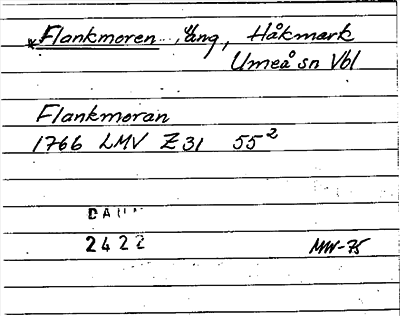 *Flankmoren, äng, Håkmark
Umeå sn Vbl
Flankmoran
1766 LMV Z31 55²
DAUM
2422
MW-75